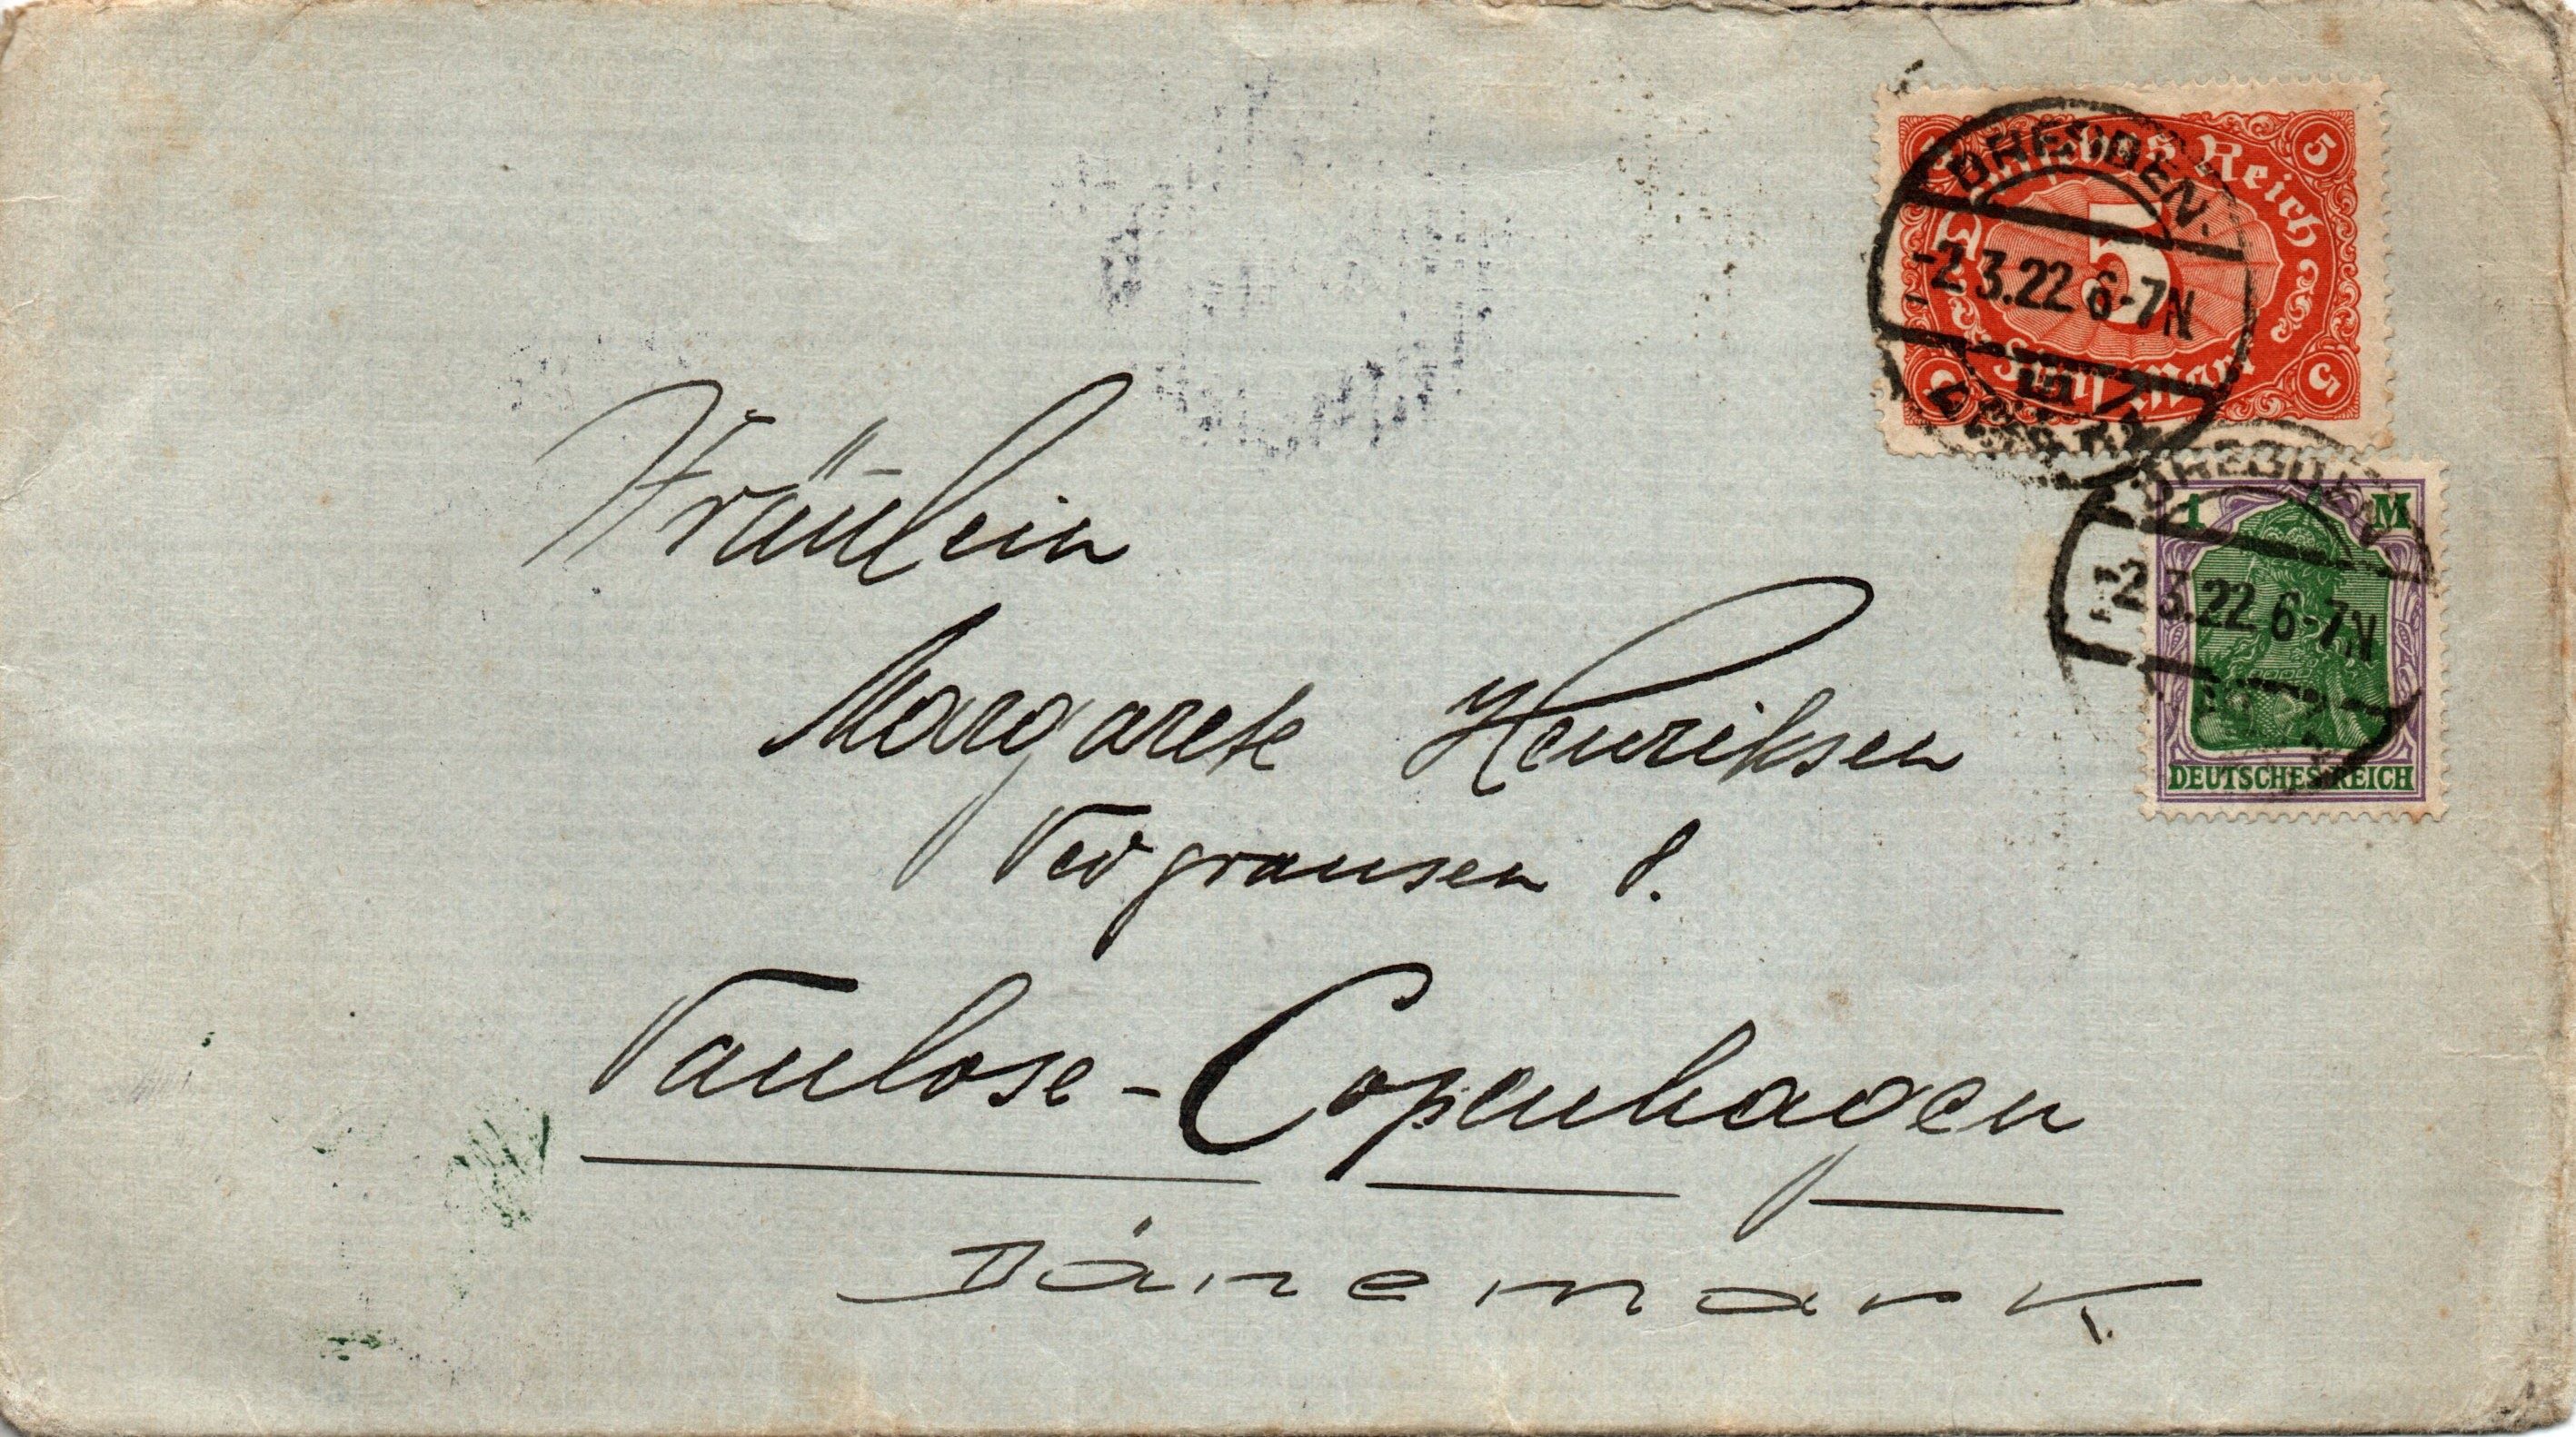 Deutsches Reich
5
5
5
Fünf Mark
DRESDEN.
-2.3.22 6-7N
1 M
DEUTSCHES REICH
DRESDEN
-2.3.22 6-7N
Fräulein
Margarete Henriksen
Vedgransen 8.
Vanlose - Copenhagen
Dänemark.